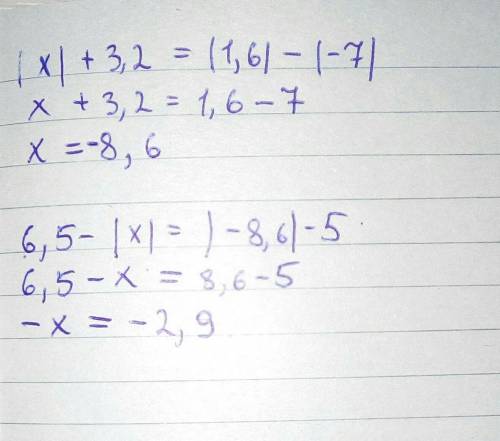 |x| + 3,2 = |1,6| - |-7|
x + 3,2 = 1,6 - 7
x = -8,6
6,5 - |x| = |-8,6| - 5
6,5 - x = 8,6 - 5
-x = -2,9